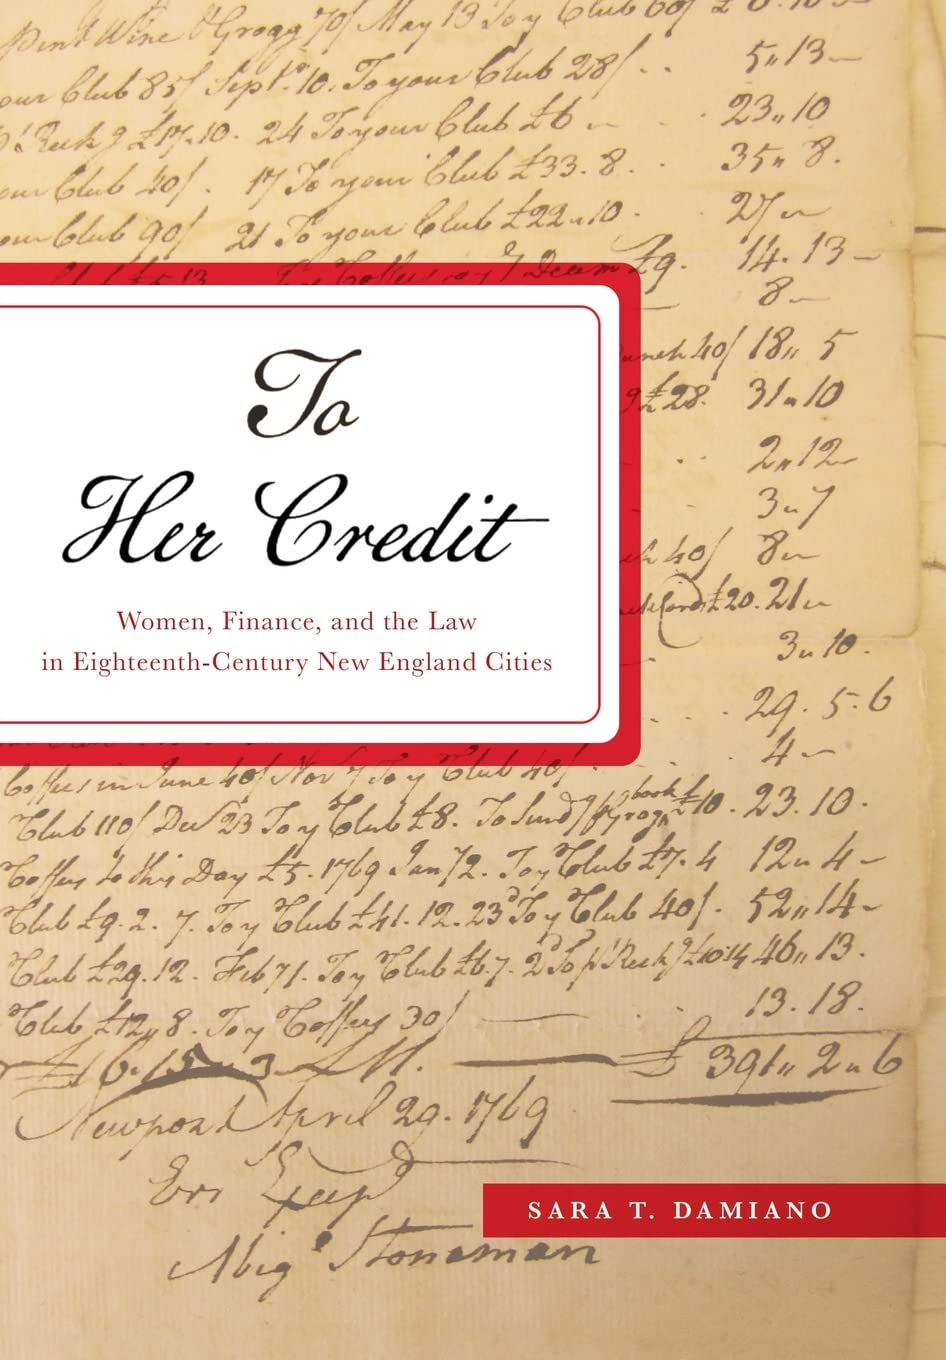 Pint Wine & Grogg 70/ May 13 To y Club 60/
our Club 85/ Sept. 10. To your Club 28/ . . 5,,13
Reck g £17.10. 24 To your Club £6 23,,10
our Club 40/. 17 To your Club £33.8. 35,, 8.
our Club 90/ 21 To your Club £22,,10. 27
£9. 14.13
8
40/ 18,, 5
£28. 31,,10
To
Her Credit
Women, Finance, and the Law
in Eighteenth-Century New England Cities
2,,12
3,,7
40/ 8
£20. 21
3,,10.
29.5.6
4
Coffees in June 40/ Nov 7 To y Club 40/
Club 110/ Dec 23 To y Club £8. To book £10. 23.10.
Coffee to this Day £5. 1769 Jan 72. To y Club £7.4 12,,4
Club £9.2. 7. To y Club £41.12. 23d To y Club 40/. 52,,14
Club £29.12. Feb 71. To y Club £6.7. 2d To Reck g £10.14 46,,13.
Club £12,,8. To y Coffees 30/ 13.18.
£ 391,,2,,6
Newport April 29. 1769
Errs Excepd
SARA T. DAMIANO
Abig Stoneman